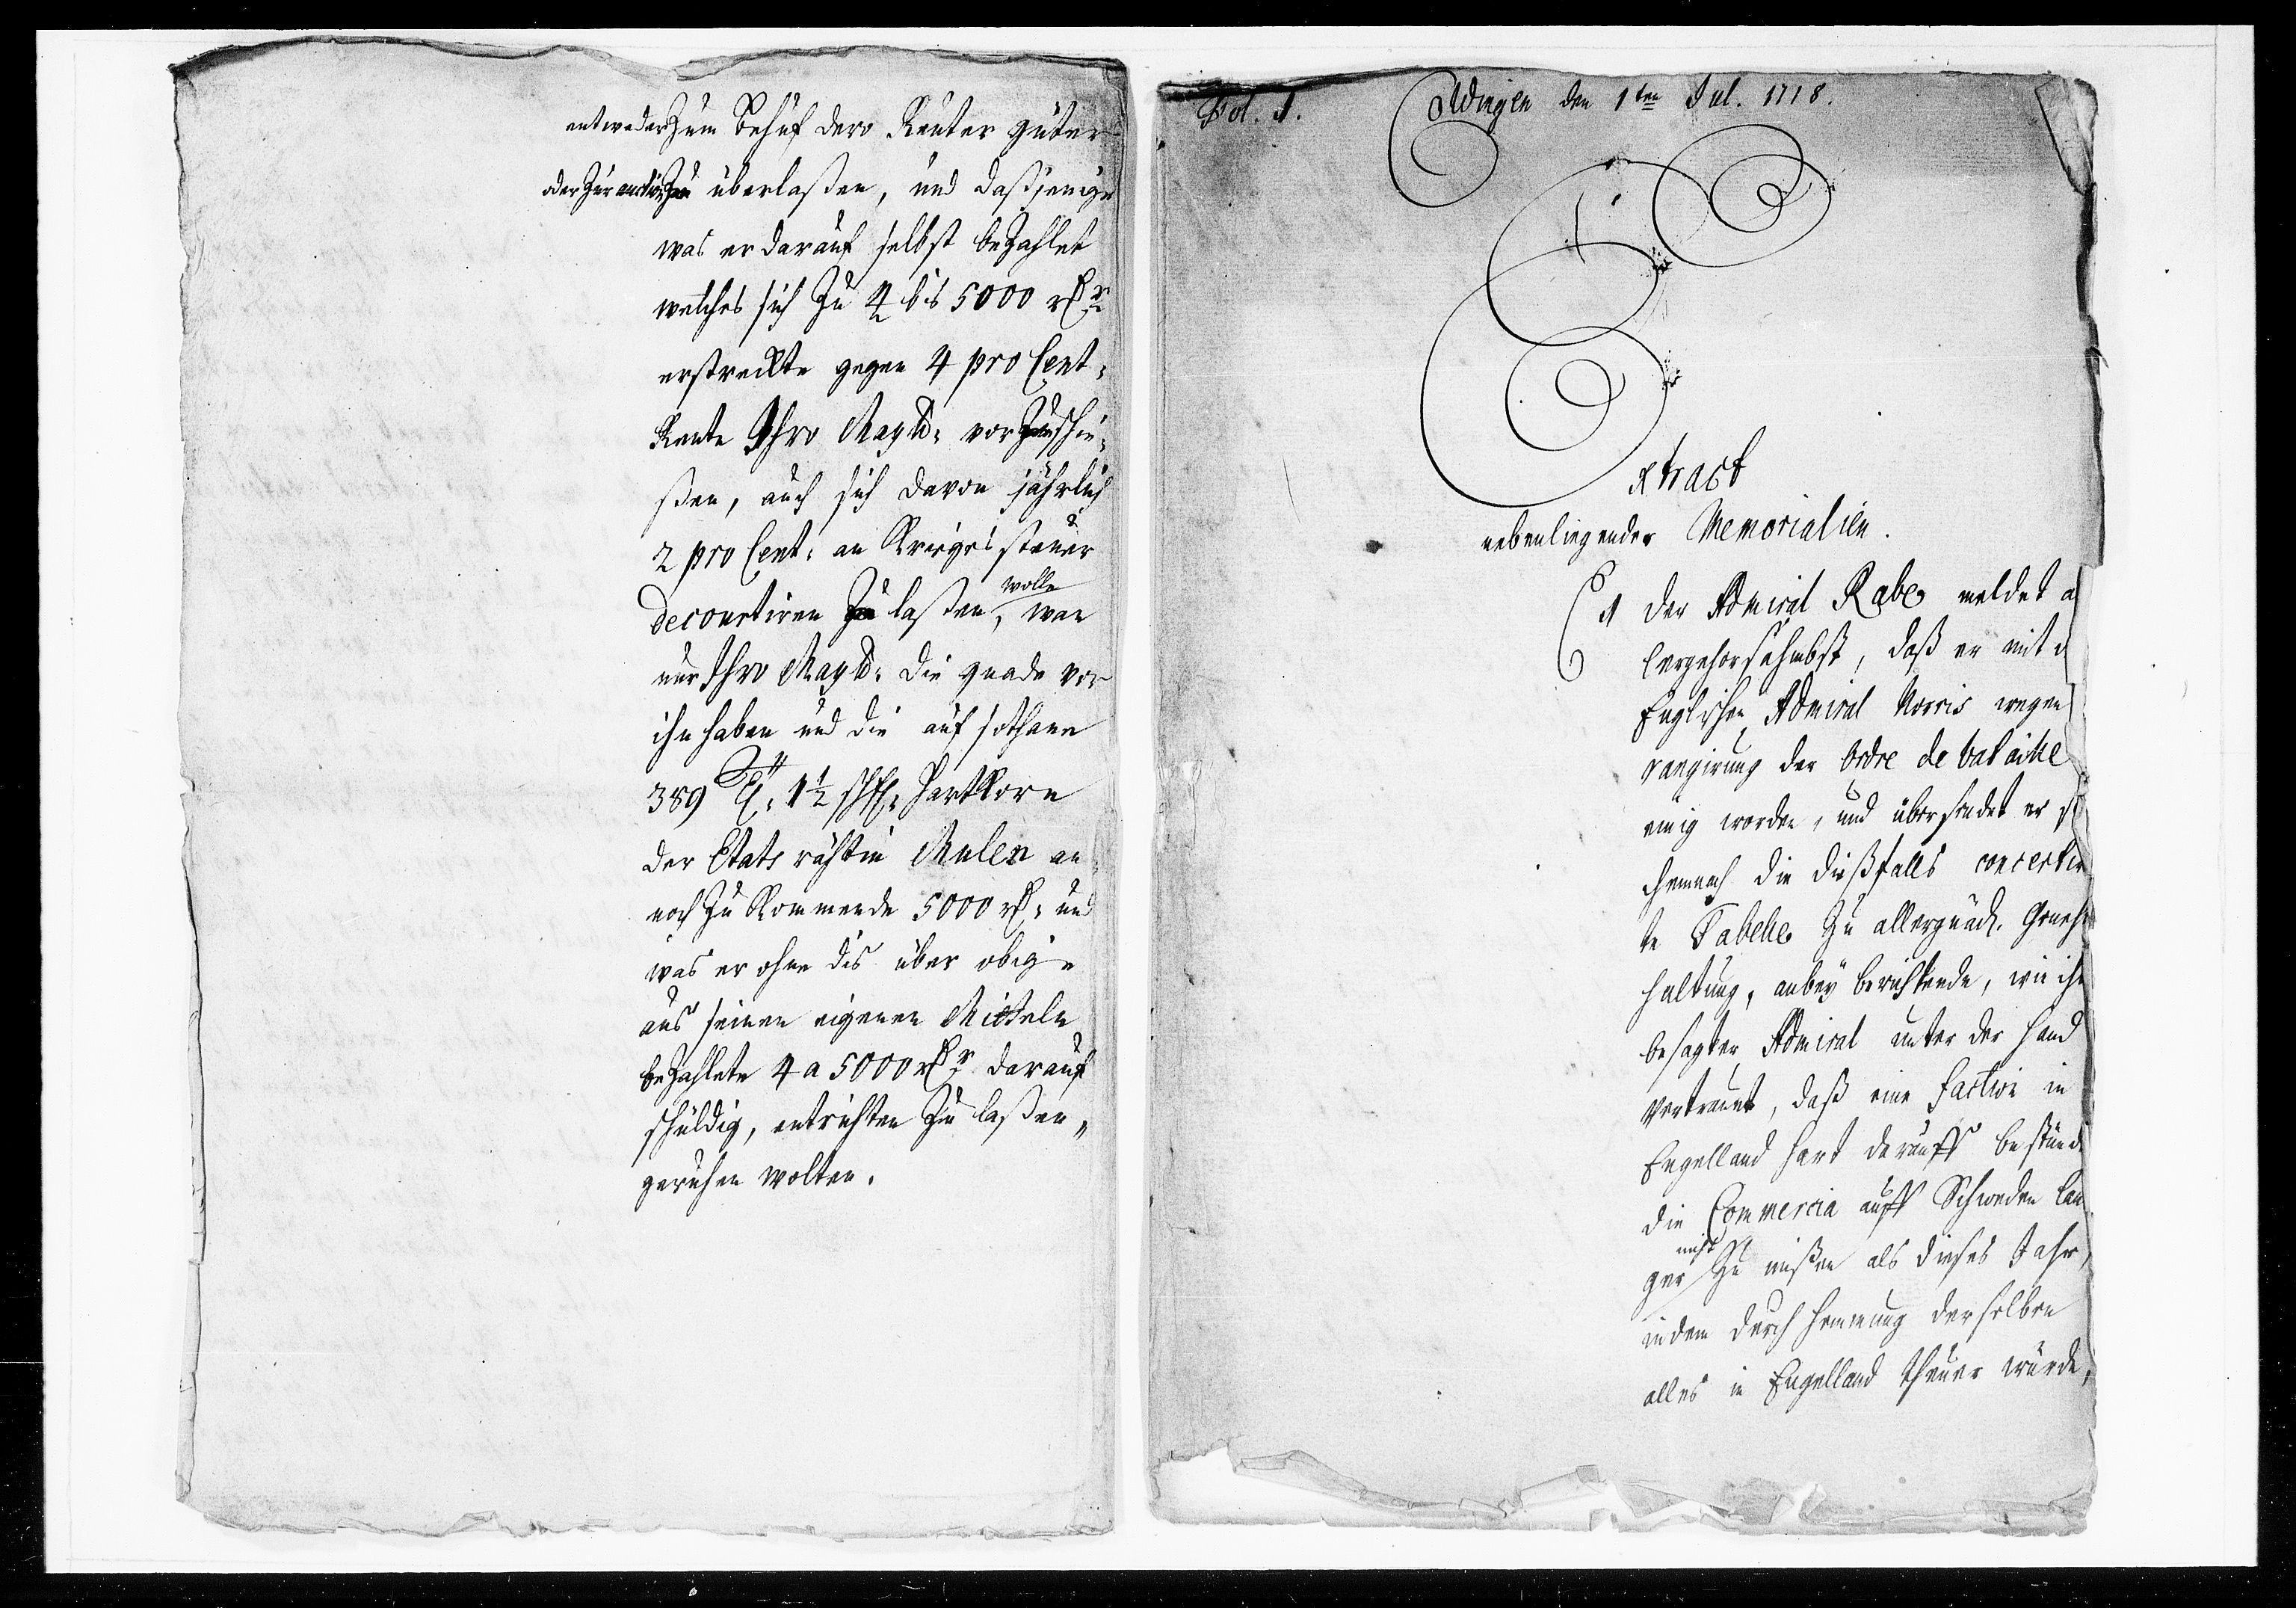 entweder Zum behuf dero Reuter güter
oder Zur auction Zu überlaßen, und daßjenige
was er darauf selbst bezahlet
welches sich Zu 4 bis 5000 rdr
erstreckte gegen 4 pro Cent:
Rente Ihro Maytt: vorZuschie-
ßen, auch sich davon jährlich
2 pro Cent: an Kriegs steuer
decourtiren Zu laßen, wolle wan
nur Ihro Maytt: die gnade vor
ihn haben und die auf sothane
389 Tt: 1½ schfl: Hartkorn
der Etats rähtin Mulen an-
noch Zu Kommende 5000 rd: und
was er ohne dis über obige
aus seinen eigenen Mitteln
bezahlete 4 a 5000 rdr darauf
schuldig, entrichten Zu laßen,
geruhen wolten.
Fol. 1.
Coldingen den 1ten Jul. 1718.
Extract
nebenliegender Memorialien.
1 Der Admiral Rabe meldet a
lergehorsahmbst, daß er mit d
Englischen Admiral Norris wegen
rangirung der Ordre de bataille
einig worden, und übersendet er s
chemnach die dießfalls concertir
te Tabelle Zu allergnäd. Geneh
haltung, anbey berichtende, wie ihm
besagter Admiral unter der hand
vertrauet, daß eine faction in
Engelland hart darauff bestünde
die Commercia auff Schweden län
ger nicht Zu mißen als dieses Jahr,
indem durch hemmung derselben
alles in Engelland theuer würde,